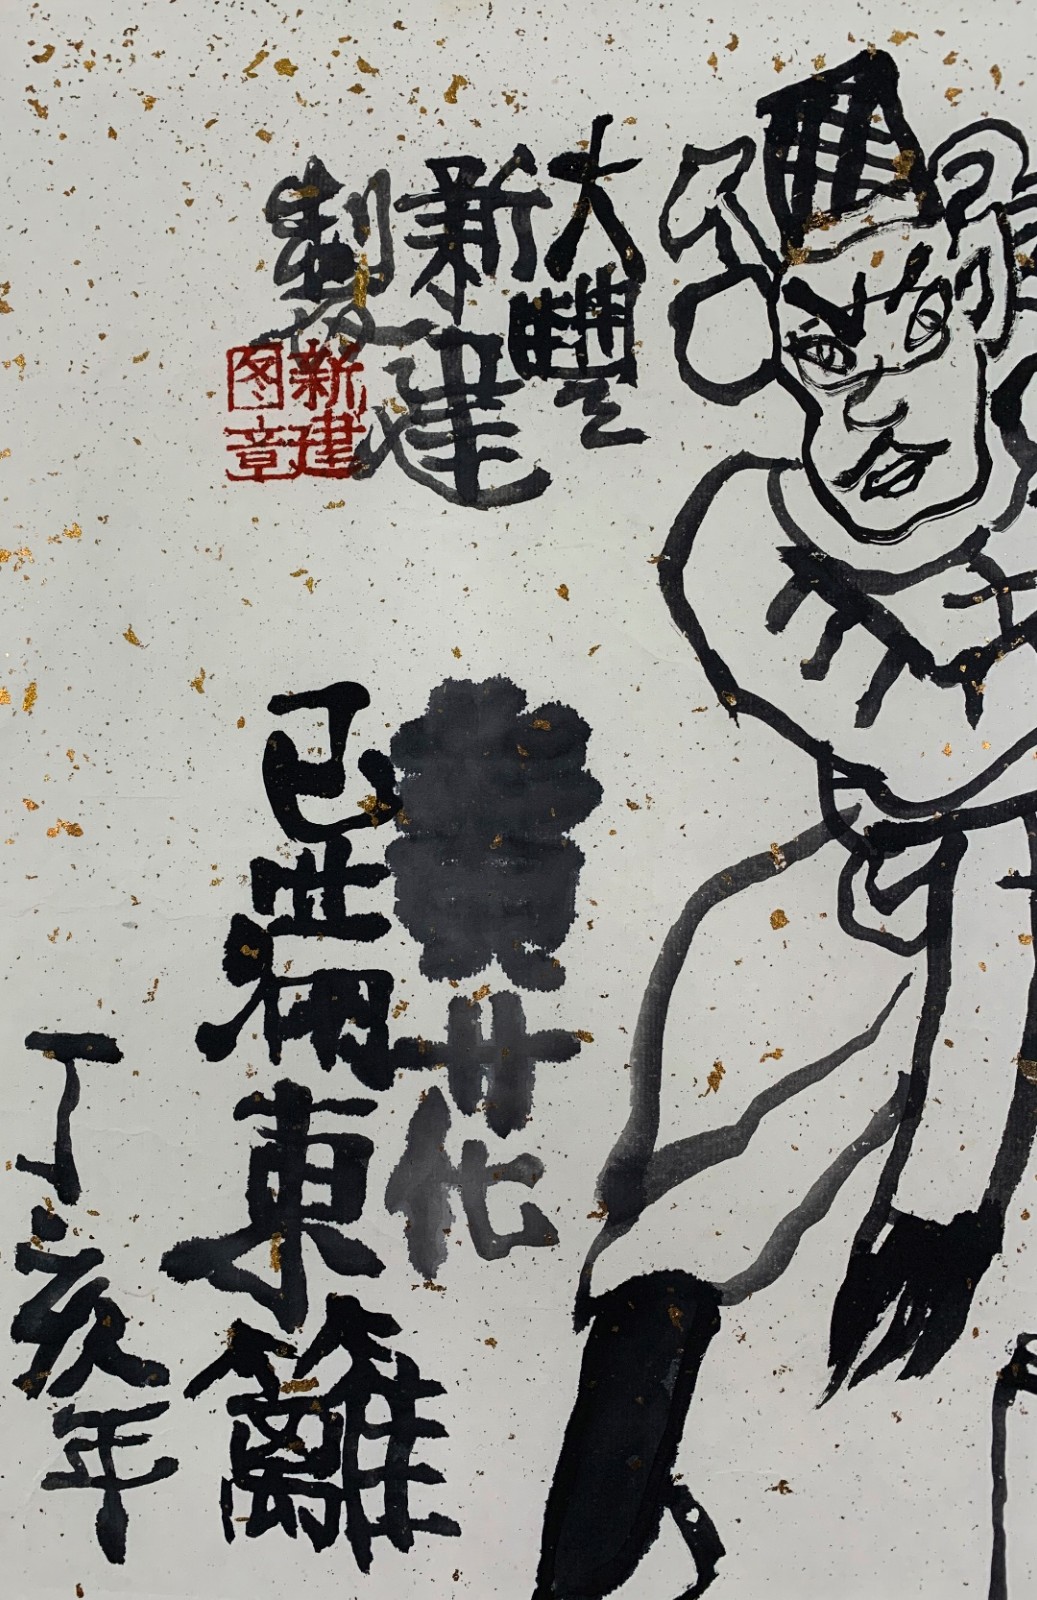 大豐
新建
製
新建
图章
黃花
已滿東籬
丁亥年